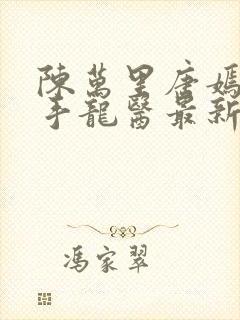 陳萬里唐嫣
手龍醫最新
馮家翠